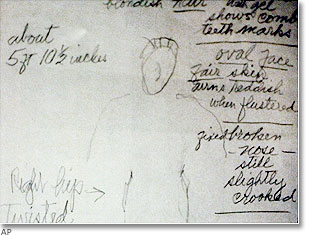 blondish hair gel
shows comb
teeth marks
about
5 ft 10½ inches
oval face
fair skin
turns reddish
when flustered
fixed broken
nose –
still
slightly
crooked
Right hip →
Twisted
AP